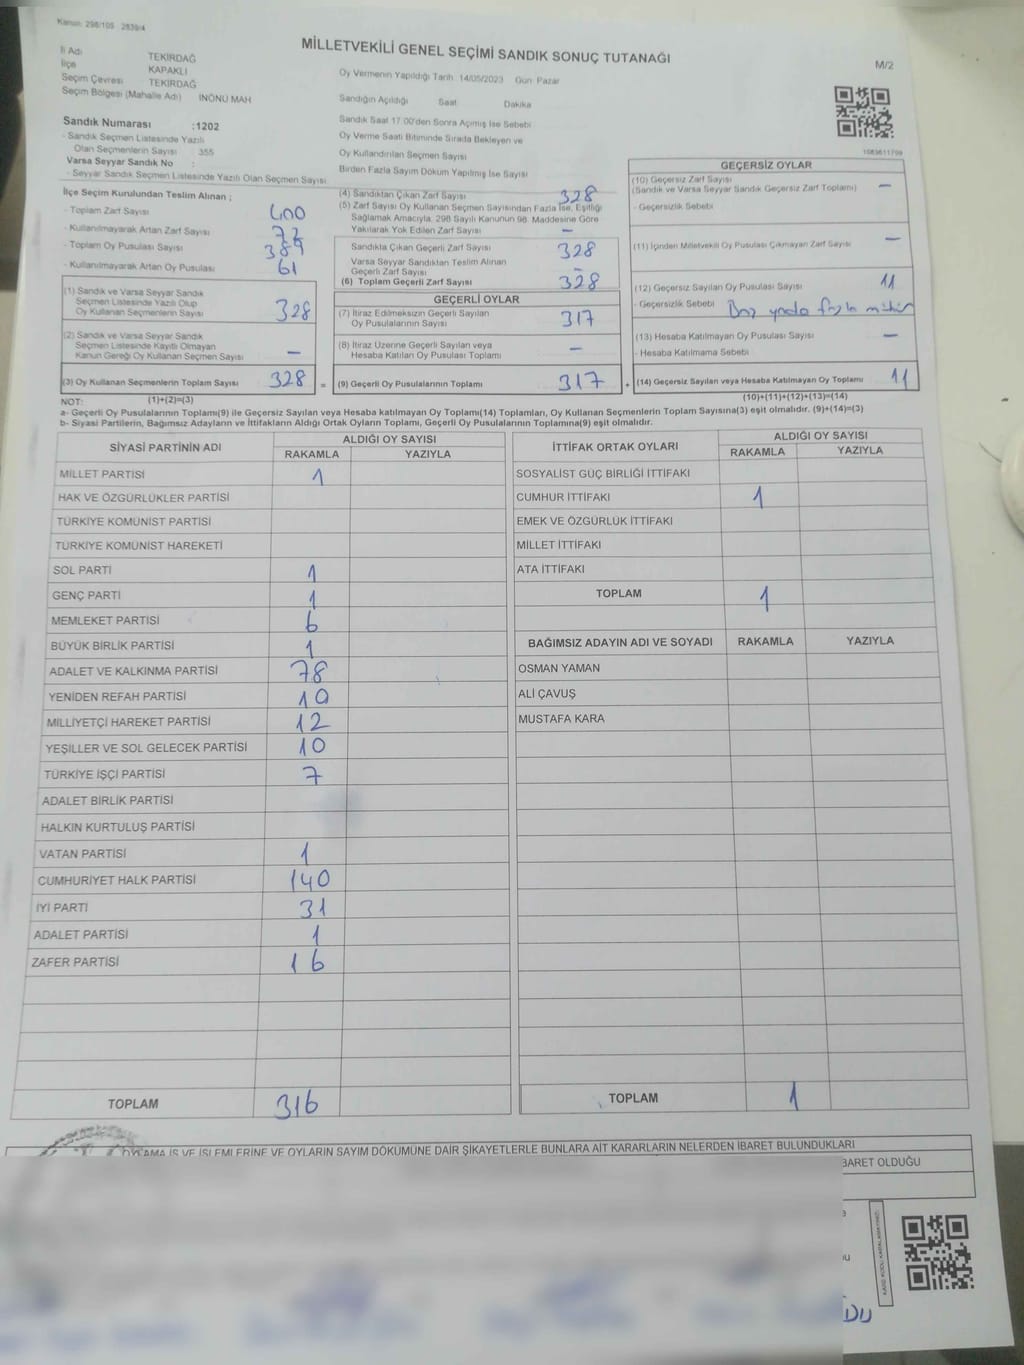 Kanun: 298/105 2839/4
MİLLETVEKİLİ GENEL SEÇİMİ SANDIK SONUÇ TUTANAĞI
M/2
İl Adı TEKİRDAĞ
İlçe KAPAKLI
Seçim Çevresi TEKİRDAĞ
Seçim Bölgesi (Mahalle Adı) İNÖNÜ MAH
Sandık Numarası :1202
- Sandık Seçmen Listesinde Yazılı
Olan Seçmenlerin Sayısı : 355
Varsa Seyyar Sandık No :
- Seyyar Sandık Seçmen Listesinde Yazılı Olan Seçmen Sayısı
Oy Vermenin Yapıldığı Tarih 14/05/2023 Gün Pazar
Sandığın Açıldığı Saat Dakika
Sandık Saat 17.00'den Sonra Açılmış İse Sebebi
Oy Verme Saati Bitiminde Sırada Bekleyen ve
Oy Kullandırılan Seçmen Sayısı
Birden Fazla Sayım Döküm Yapılmış İse Sayısı
İlçe Seçim Kurulundan Teslim Alınan ;
- Toplam Zarf Sayısı 400
- Kullanılmayarak Artan Zarf Sayısı 72
- Toplam Oy Pusulası Sayısı 389
- Kullanılmayarak Artan Oy Pusulası 61
(1) Sandık ve Varsa Seyyar Sandık
Seçmen Listesinde Yazılı Olup
Oy Kullanan Seçmenlerin Sayısı 328
(2) Sandık ve Varsa Seyyar Sandık
Seçmen Listesinde Kayıtlı Olmayan
Kanun Gereği Oy Kullanan Seçmen Sayısı –
(3) Oy Kullanan Seçmenlerin Toplam Sayısı 328 =
(4) Sandıktan Çıkan Zarf Sayısı 328
(5) Zarf Sayısı Oy Kullanan Seçmen Sayısından Fazla İse, Eşitliği
Sağlamak Amacıyla, 298 Sayılı Kanunun 98. Maddesine Göre
Yakılarak Yok Edilen Zarf Sayısı –
Sandıkta Çıkan Geçerli Zarf Sayısı 328
Varsa Seyyar Sandıktan Teslim Alınan
Geçerli Zarf Sayısı –
(6) Toplam Geçerli Zarf Sayısı 328
GEÇERLİ OYLAR
(7) İtiraz Edilmeksizin Geçerli Sayılan
Oy Pusulalarının Sayısı 317
(8) İtiraz Üzerine Geçerli Sayılan veya
Hesaba Katılan Oy Pusulası Toplamı –
(9) Geçerli Oy Pusulalarının Toplamı 317 +
1083611799
GEÇERSİZ OYLAR
(10) Geçersiz Zarf Sayısı –
(Sandık ve Varsa Seyyar Sandık Geçersiz Zarf Toplamı)
- Geçersizlik Sebebi
(11) İçinden Milletvekili Oy Pusulası Çıkmayan Zarf Sayısı –
(12) Geçersiz Sayılan Oy Pusulası Sayısı 11
- Geçersizlik Sebebi fazla mühür
(13) Hesaba Katılmayan Oy Pusulası Sayısı –
- Hesaba Katılmama Sebebi
(14) Geçersiz Sayılan veya Hesaba Katılmayan Oy Toplamı 11
NOT: (1)+(2)=(3) (10)+(11)+(12)+(13)=(14)
a- Geçerli Oy Pusulalarının Toplamı(9) ile Geçersiz Sayılan veya Hesaba katılmayan Oy Toplamı(14) Toplamları, Oy Kullanan Seçmenlerin Toplam Sayısına(3) eşit olmalıdır. (9)+(14)=(3)
b- Siyasi Partilerin, Bağımsız Adayların ve İttifakların Aldığı Ortak Oyların Toplamı, Geçerli Oy Pusulalarının Toplamına(9) eşit olmalıdır.
SİYASİ PARTİNİN ADI ALDIĞI OY SAYISI
RAKAMLA YAZIYLA
MİLLET PARTİSİ 1
HAK VE ÖZGÜRLÜKLER PARTİSİ
TÜRKİYE KOMÜNİST PARTİSİ
TÜRKİYE KOMÜNİST HAREKETİ
SOL PARTİ 1
GENÇ PARTİ 1
MEMLEKET PARTİSİ 6
BÜYÜK BİRLİK PARTİSİ 1
ADALET VE KALKINMA PARTİSİ 78
YENİDEN REFAH PARTİSİ 10
MİLLİYETÇİ HAREKET PARTİSİ 12
YEŞİLLER VE SOL GELECEK PARTİSİ 10
TÜRKİYE İŞÇİ PARTİSİ 7
ADALET BİRLİK PARTİSİ
HALKIN KURTULUŞ PARTİSİ
VATAN PARTİSİ 1
CUMHURİYET HALK PARTİSİ 140
İYİ PARTİ 31
ADALET PARTİSİ 1
ZAFER PARTİSİ 16
TOPLAM 316
İTTİFAK ORTAK OYLARI ALDIĞI OY SAYISI
RAKAMLA YAZIYLA
SOSYALİST GÜÇ BİRLİĞİ İTTİFAKI
CUMHUR İTTİFAKI 1
EMEK VE ÖZGÜRLÜK İTTİFAKI
MİLLET İTTİFAKI
ATA İTTİFAKI
TOPLAM 1
BAĞIMSIZ ADAYIN ADI VE SOYADI RAKAMLA YAZIYLA
OSMAN YAMAN
ALİ ÇAVUŞ
MUSTAFA KARA
TOPLAM 1
OYLAMA İŞ VE İŞLEMLERİNE VE OYLARIN SAYIM DÖKÜMÜNE DAİR ŞİKAYETLERLE BUNLARA AİT KARARLARIN NELERDEN İBARET BULUNDUKLARI
İBARET OLDUĞU